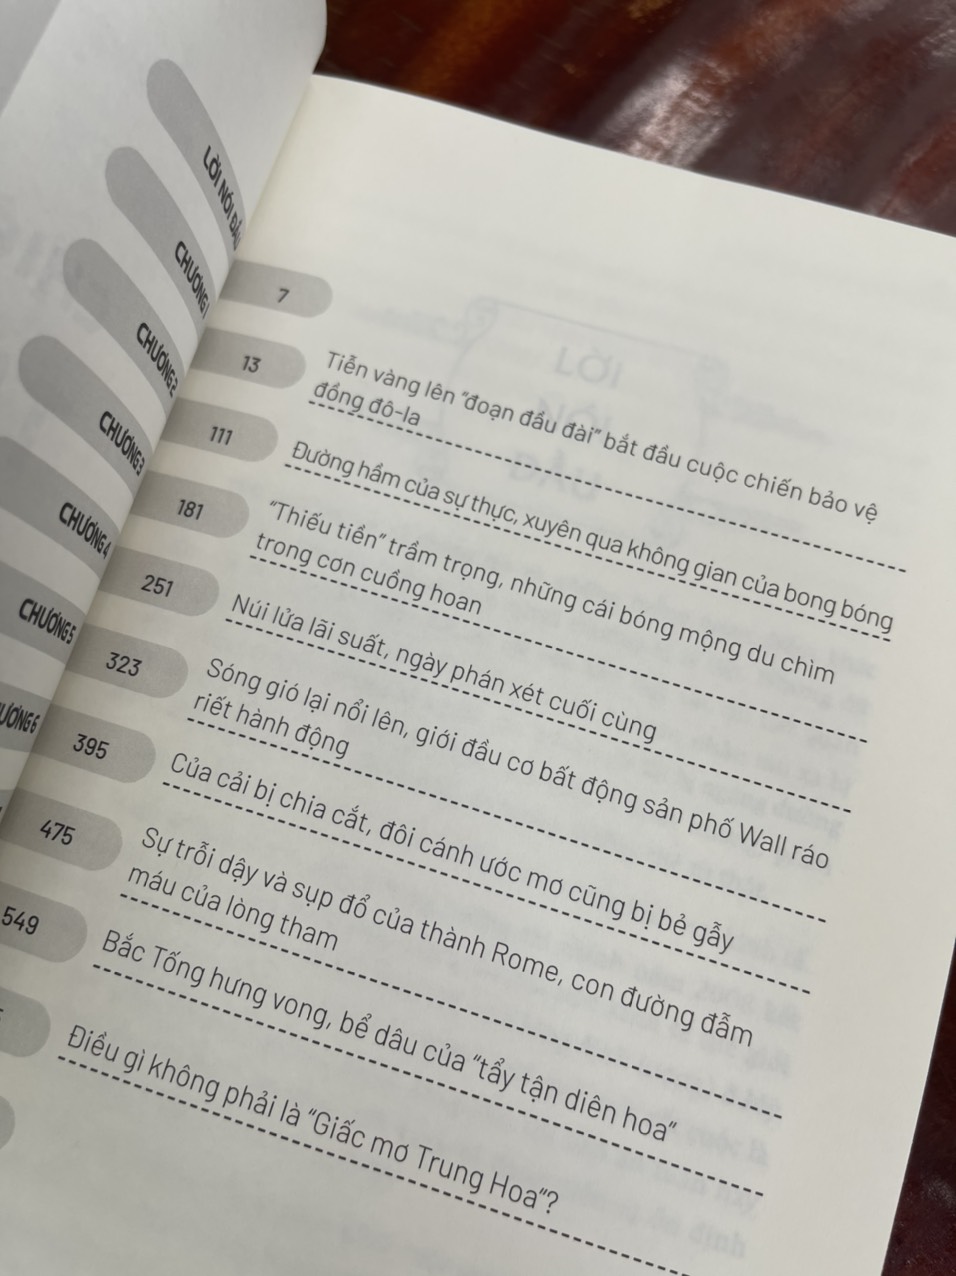 LỜI NÓI ĐẦU
CHƯƠNG 1
CHƯƠNG 2
CHƯƠNG 3
CHƯƠNG 4
CHƯƠNG 5
ƯƠNG 6
7
13
Tiễn vàng lên “đoạn đầu đài” bắt đầu cuộc chiến bảo vệ
đồng đô-la
111
Đường hầm của sự thực, xuyên qua không gian của bong bóng
181
“Thiếu tiền” trầm trọng, những cái bóng mộng du chìm
trong cơn cuồng hoan
251
Núi lửa lãi suất, ngày phán xét cuối cùng
323
Sóng gió lại nổi lên, giới đầu cơ bất động sản phố Wall ráo
riết hành động
395
Của cải bị chia cắt, đôi cánh ước mơ cũng bị bẻ gẫy
475
Sự trỗi dậy và sụp đổ của thành Rome, con đường đẫm
máu của lòng tham
549
Bắc Tống hưng vong, bể dâu của “tẩy tận diên hoa”
Điều gì không phải là “Giấc mơ Trung Hoa”?
LỜI
NÓI
ĐẦU